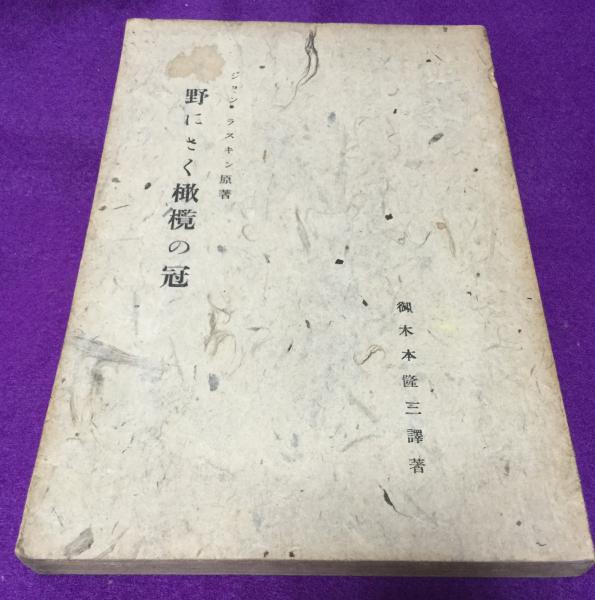 ジョン・ラスキン原著
野にさく橄欖の冠
御木本隆三譯著